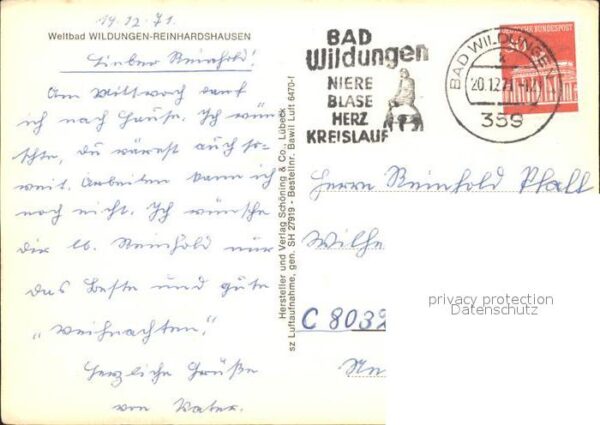 19.12.71.
Weltbad WILDUNGEN-REINHARDSHAUSEN
Lieber Reinhold!
Am Mittwoch darf
ich nach Hause. Ich wün-
schte, du wärest auch so-
weit. Arbeiten kann ich
noch nicht. Ich wünsche
dir lb. Reinhold nur
das Beste und gute
"Weihnachten".
Herzliche Grüße
von Vater.
Hersteller und Verlag Schöning & Co., Lübeck
sz Luftaufnahme, gen. SH 27919 - Bestellnr. Bawil Luft 6470-f
BAD
Wildungen
NIERE
BLASE
HERZ
KREISLAUF
BAD WILDUNGEN
20.12.71
359
DEUTSCHE BUNDESPOST
Herrn Reinhold Pfalt
Wilhe
C 8039
Ne
privacy protection
Datenschutz